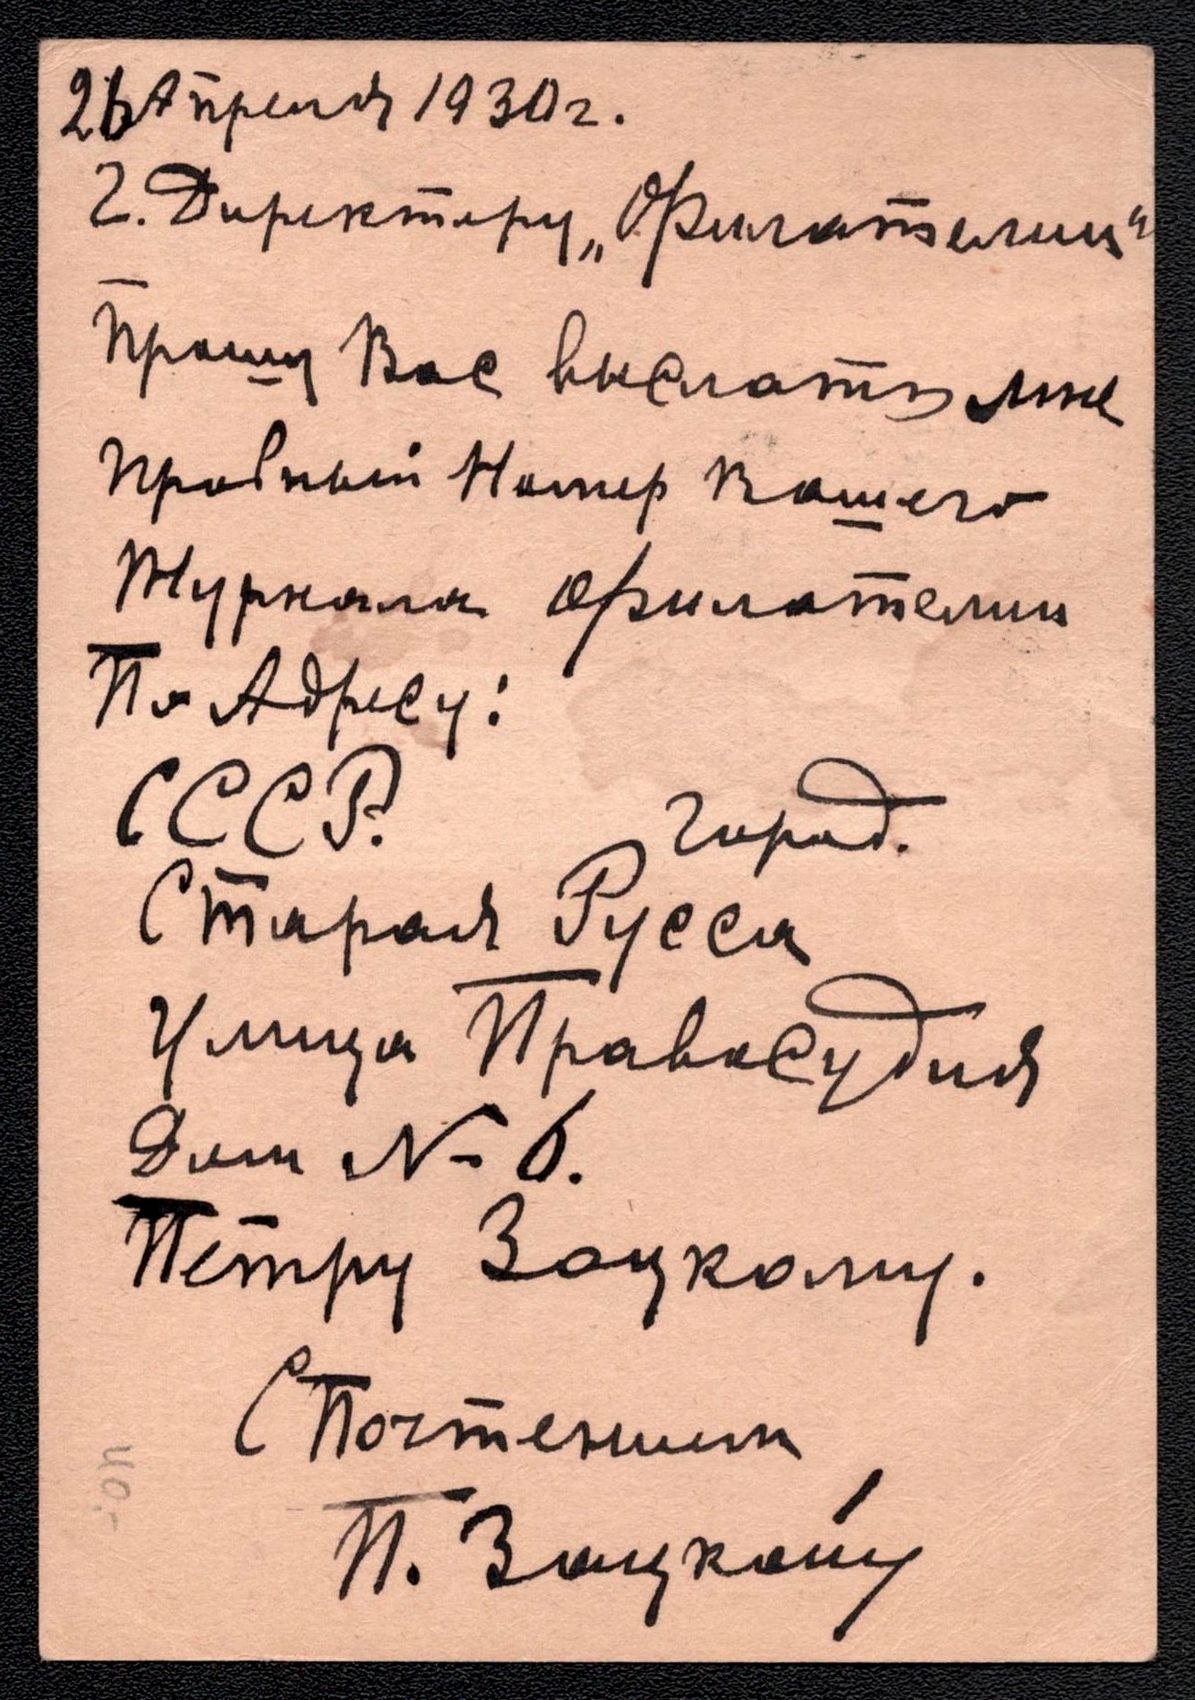 26 Апреля 1930 г.
Г. Директору „Филателии“
Прошу Вас выслать мне
пробный Номер Вашего
Журнала Филателии
По Адресу:
СССР. город.
Старая Русса
Улица Правосудия
Дом № 6.
Петру Зацкому.
С Почтением
П. Зацкой
40.-